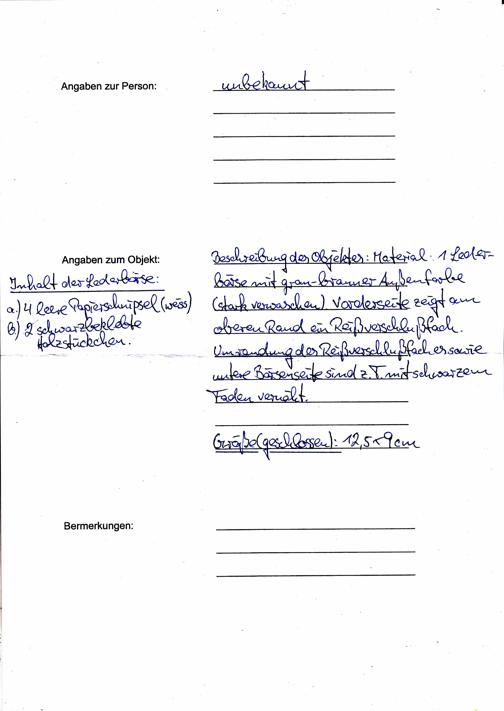 Angaben zur Person:
unbekannt
Angaben zum Objekt:
Inhalt der Lederbörse:
a.) 4 leere Papierschnipsel (weiss)
b) 2 schwarzbeklebte
Holzstückchen.
Beschreibung des Objektes: Material: 1 Leder-
börse mit grau-brauner Außenfarbe
(stark verwaschen) Vorderseite zeigt am
oberen Rand ein Reißverschlußfach.
Umrandung des Reißverschlußfaches sowie
untere Börsenseite sind z.T. mit schwarzem
Faden vernäht.
Größe (geschlossen): 12,5 x 9 cm
Bermerkungen: